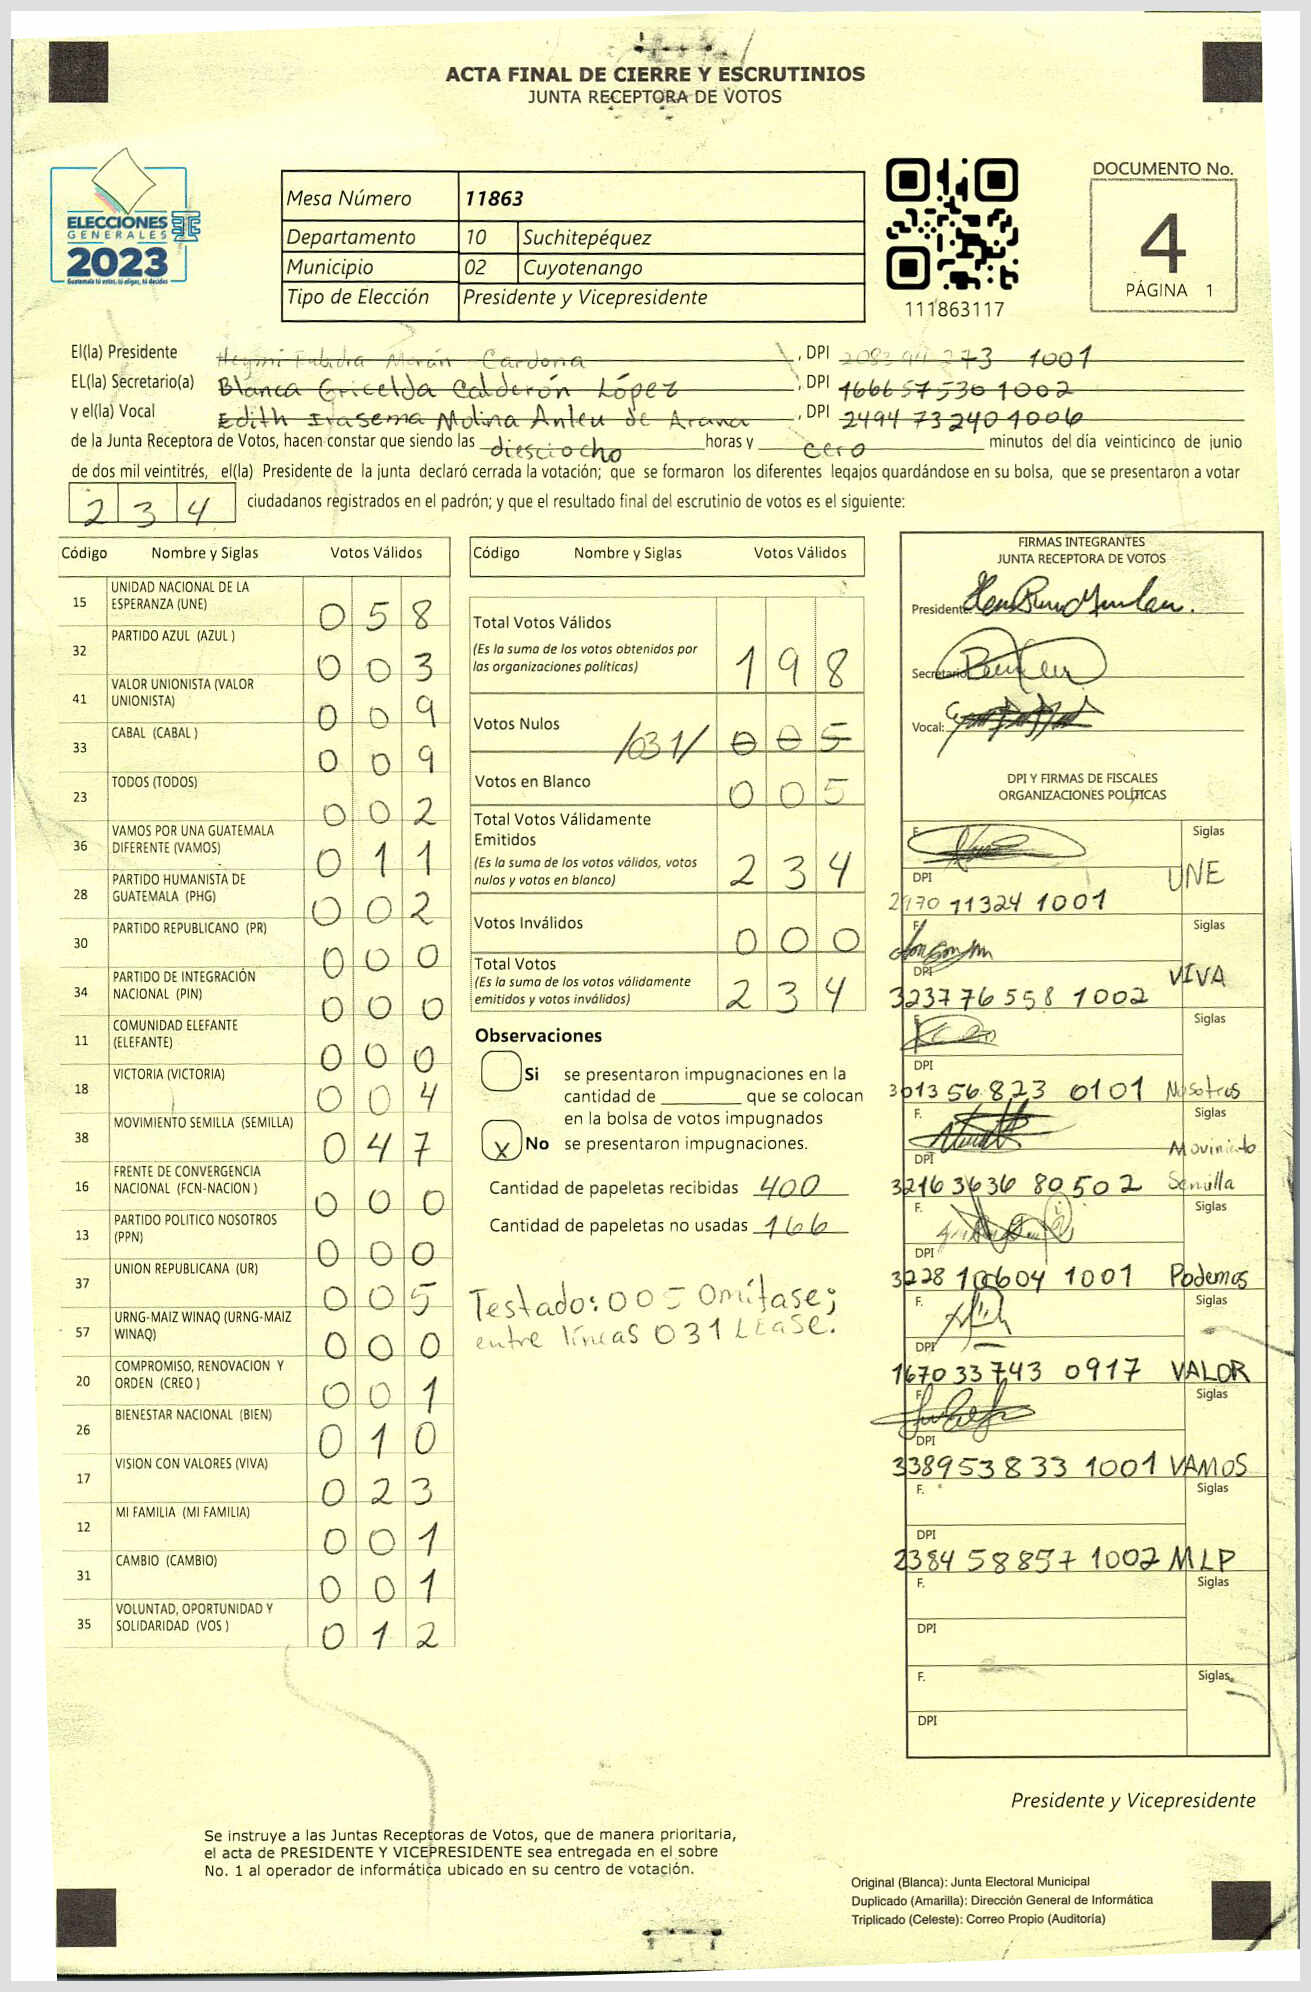 ACTA FINAL DE CIERRE Y ESCRUTINIOS
JUNTA RECEPTORA DE VOTOS
ELECCIONES
GENERALES
2023
Guatemala tú votas, tú eliges, tú decides
Mesa Número 11863
Departamento 10 Suchitepéquez
Municipio 02 Cuyotenango
Tipo de Elección Presidente y Vicepresidente
111863117
DOCUMENTO No.
4
PÁGINA 1
El(la) Presidente Cardona, DPI 1001
EL(la) Secretario(a) Blanca Gricelda Calderón López, DPI 1666 57530 1002
y el(la) Vocal Edith Irasema Molina Anleu de Arana, DPI 2494 73240 1006
de la Junta Receptora de Votos, hacen constar que siendo las diesciocho horas y cero minutos del día veinticinco de junio
de dos mil veintitrés, el(la) Presidente de la junta declaró cerrada la votación; que se formaron los diferentes legajos guardándose en su bolsa, que se presentaron a votar
234 ciudadanos registrados en el padrón; y que el resultado final del escrutinio de votos es el siguiente:
Código Nombre y Siglas Votos Válidos
15 UNIDAD NACIONAL DE LA ESPERANZA (UNE) 058
32 PARTIDO AZUL (AZUL ) 003
41 VALOR UNIONISTA (VALOR UNIONISTA) 009
33 CABAL (CABAL ) 009
23 TODOS (TODOS) 002
36 VAMOS POR UNA GUATEMALA DIFERENTE (VAMOS) 011
28 PARTIDO HUMANISTA DE GUATEMALA (PHG) 002
30 PARTIDO REPUBLICANO (PR) 000
34 PARTIDO DE INTEGRACIÓN NACIONAL (PIN) 000
11 COMUNIDAD ELEFANTE (ELEFANTE) 000
18 VICTORIA (VICTORIA) 004
38 MOVIMIENTO SEMILLA (SEMILLA) 047
16 FRENTE DE CONVERGENCIA NACIONAL (FCN-NACION ) 000
13 PARTIDO POLITICO NOSOTROS (PPN) 000
37 UNION REPUBLICANA (UR) 005
57 URNG-MAIZ WINAQ (URNG-MAIZ WINAQ) 000
20 COMPROMISO, RENOVACION Y ORDEN (CREO ) 001
26 BIENESTAR NACIONAL (BIEN) 010
17 VISION CON VALORES (VIVA) 023
12 MI FAMILIA (MI FAMILIA) 001
31 CAMBIO (CAMBIO) 001
35 VOLUNTAD, OPORTUNIDAD Y SOLIDARIDAD (VOS ) 012
Código Nombre y Siglas Votos Válidos
Total Votos Válidos
(Es la suma de los votos obtenidos por
las organizaciones políticas) 198
Votos Nulos /031/ 005
Votos en Blanco 005
Total Votos Válidamente
Emitidos
(Es la suma de los votos válidos, votos
nulos y votos en blanco) 234
Votos Inválidos 000
Total Votos
(Es la suma de los votos válidamente
emitidos y votos inválidos) 234
Observaciones
Si se presentaron impugnaciones en la
cantidad de ________ que se colocan
en la bolsa de votos impugnados
X No se presentaron impugnaciones.
Cantidad de papeletas recibidas 400
Cantidad de papeletas no usadas 166
Testado: 005 Omítase;
entre líneas 031 LEASE.
FIRMAS INTEGRANTES
JUNTA RECEPTORA DE VOTOS
Presidente:
Secretario
Vocal:
DPI Y FIRMAS DE FISCALES
ORGANIZACIONES POLÍTICAS
F. Siglas
DPI UNE
11324 1001
F. Siglas
DPI VIVA
3237 76558 1002
F. Siglas
DPI
3013 56823 0101 Nosotros
F. Siglas
DPI Movimiento
3216 3636 80502 Semilla
F. Siglas
DPI
3228 10604 1001 Podemos
F. Siglas
DPI
1670 33743 0917 VALOR
F. Siglas
DPI
3389 53833 1001 VAMOS
F. Siglas
DPI
2384 58857 1002 MLP
F. Siglas
DPI
F. Siglas
DPI
Presidente y Vicepresidente
Se instruye a las Juntas Receptoras de Votos, que de manera prioritaria,
el acta de PRESIDENTE Y VICEPRESIDENTE sea entregada en el sobre
No. 1 al operador de informática ubicado en su centro de votación.
Original (Blanca): Junta Electoral Municipal
Duplicado (Amarilla): Dirección General de Informática
Triplicado (Celeste): Correo Propio (Auditoría)